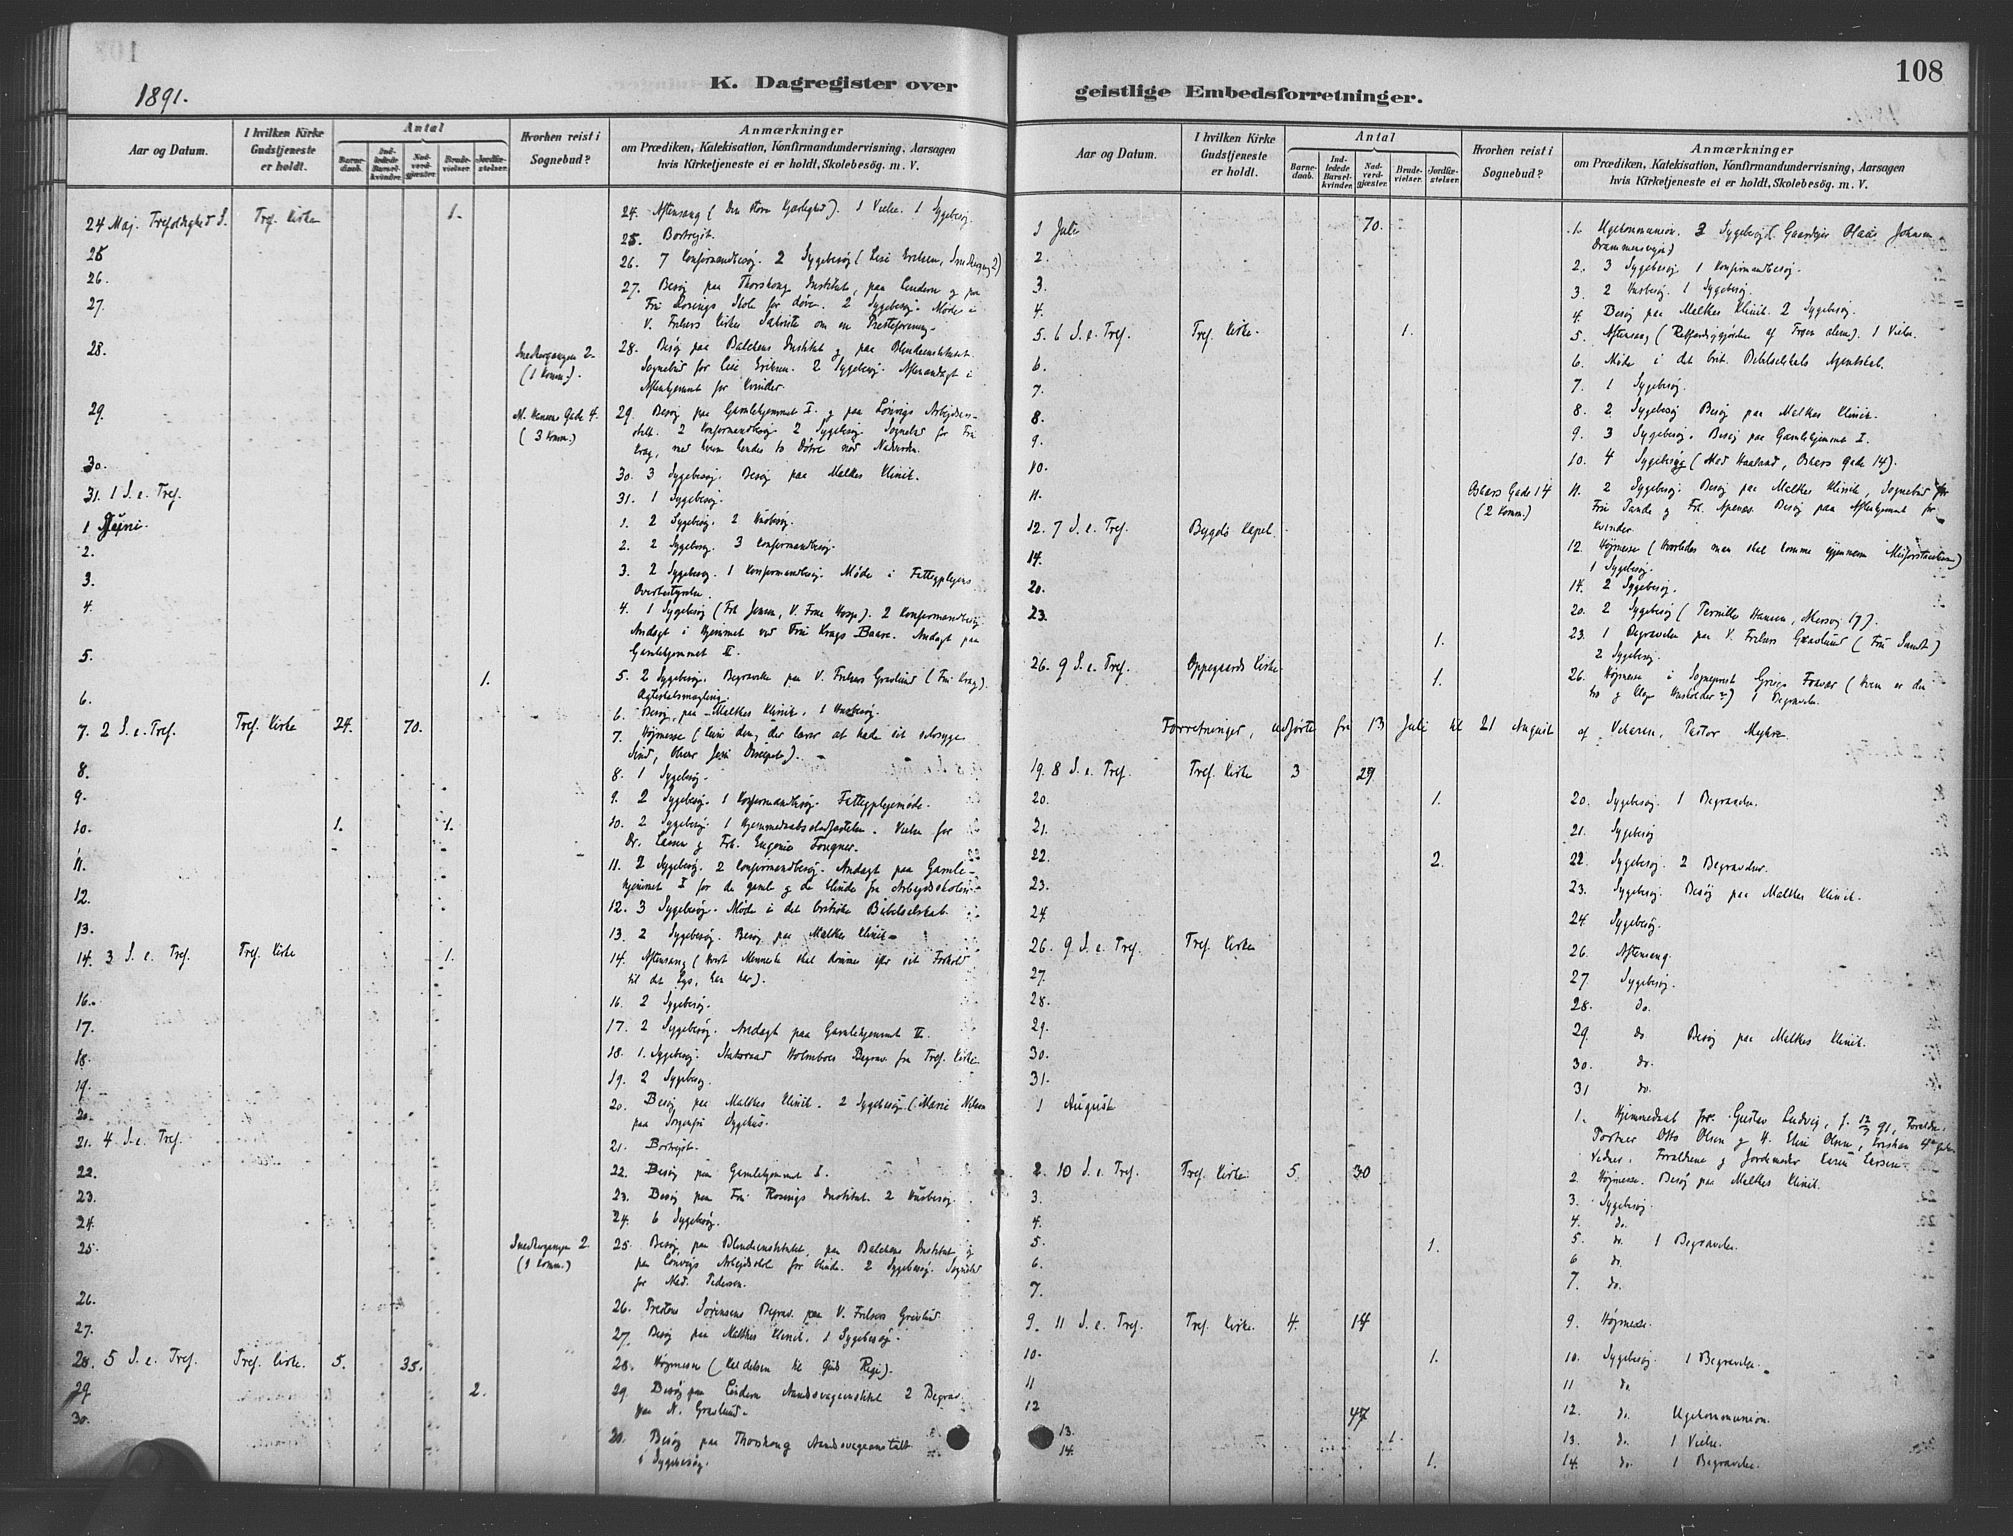 108
1891.
K. Dagregister over geistlige Embedsforretninger.
Aar og Datum.
I hvilken Kirke Gudstjeneste er holdt.
Antal
Barnedaab.
Indledede Barselkvinder.
Nadverdgjæster.
Brudevielser.
Jordfæstelser.
Hvorhen reist i Sognebud?
Anmærkninger
om Prædiken, Katekisation, Konfirmandundervisning, Aarsagen
hvis Kirketjeneste ei er holdt, Skolebesøg. m. V.
24 Maj. Trefoldighed S. Tref. Kirke 1. 24. Aftensang (Den store Kjærlighed). 1 Vielse. 1 Sygebesøg.
25 25. Bortrejst.
26. 26. 7 Konfirmandbesøg. 2 Sygebesøg (Lise Eriksen, Smedkergangen 2)
27. 27. Besøg paa Thorshaug Institut, paa Lindern og paa
Fru Rosings Skole for døve. 2 Sygebesøg. Møde i
V. Frelsers Kirkes Sakristi om en Presteforening.
28. Snedkergangen 2. 28. Besøg paa Balchens Institut og paa Blindeinstitutet
(1 Komm.). Sognebud for Lise Eriksen. 2 Sygebesøg. Aftenandagt i
Aftenhjemmet for Kvinder.
29. N. Hansens Gade 4. 29. Besøg paa Gamlehjemmet I. og paa Lønvigs Arbejds-
(3 Komm.) 2 Konfirmandbesøg 2 Sygebesøg. Sognebud for Fru
Krag, med hvem hendes to Døtre nød Nadverden.
30. 30. 3 Sygebesøg. Besøg paa Malthes Klinik.
31. 1 S. e. Tref. 31. 1 Sygebesøg.
1 Juni. 1. 2 Sygebesøg. 2 Husbesøg.
2. 2. 2 Sygebesøg. 3 Konfirmandbesøg.
3. 3. 2 Sygebesøg. 1 Konfirmandbesøg. Møde i Fattigplejens
Overbestyrelse.
4. 4. 1 Sygebesøg (Frk Jensen, V. Frue Hosp). 2 Konfirmandbesøg
Andagt i Hjemmet ved Fru Krags Baare. Andagt paa
Gamlehjemmet II.
5. 1. 5. 2 Sygebesøg. Begravelse paa V. Frelsers Gravlund (Fru Krag).
6. 6. Besøg paa Malthes Klinik. 1 Husbesøg.
7. 2 S. e. Tref. Tref. Kirke 24. 70. 7. Højmesse (Kun den, der lærer at hade sit selvsyge
Sind, bliver Jesu Discipel).
8. 8. 1 Sygebesøg.
9. 9. 2 Sygebesøg. 1 Konfirmandbesøg. Fattigplejemøde.
10. 1. 1. 10. 2 Sygebesøg. 1 Hjemmedaabsstadfæstelse. Vielse for
Dr. Larsen og Frk. Eugenie Fougner.
11. 11. 2 Sygebesøg. 2 Konfirmandbesøg. Andagt paa Gamle-
hjemmet I for de gamle og de blinde fra Arbejdsskolen.
12. 12. 3 Sygebesøg. Møde i det britiske Bibelselskab.
13. 13. 2 Sygebesøg. Besøg paa Malthes Klinik.
14. 3 S. e. Tref. Tref. Kirke 1. 14. Aftensang (Hvert Menneske skal dømmes efter sit Forhold
til det Lys, han har).
16. 16. 2 Sygebesøg.
17. 17. 2 Sygebesøg. Andagt paa Gamlehjemmet II.
18. 18. 1. Sygebesøg. Statsraad Holmboes Begrav. fra Tref. Kirke.
19. 19. 2 Sygebesøg.
20. 20. Besøg paa Malthes Klinik. 2 Sygebesøg (Marie Nilsen
paa Sorgenfri Sygehus.
21. 4 S. e. Tref. 21. Bortrejst.
22. 22. Besøg paa Gamlehjemmet I.
23. 23. Besøg paa Fru Rosings Institut. 2 Husbesøg.
24. 24. 6 Sygebesøg.
25. Snedkergangen 2 25. Besøg paa Blindeinstitutet, paa Balchens Institut og
(1 Komm.) paa Lønvigs Arbejdsskole for blinde. 2 Sygebesøg. Sognebud
for Mad. Pedersen.
26. 26. Presten Sørensens Begrav. paa V. Frelsers Gravlund
27. 27. Besøg paa Malthes Klinik. 1 Sygebesøg.
28. 5 S. e. Tref. Tref. Kirke. 5. 35. 28. Højmesse (Kaldelsen til Guds Rige).
29 2. 29. Besøg paa Lindern Aandssvageinstitut 2 Begrav.
paa N. Gravlund.
30. 30. Besøg paa Thorshaug Aandssvageanstalt
Sygebesøg.
Aar og Datum.
I hvilken Kirke Gudstjeneste er holdt.
Antal
Barnedaab.
Indledede Barselkvinder.
Nadverdgjæster.
Brudevielser.
Jordfæstelser.
Hvorhen reist i Sognebud?
Anmærkninger
om Prædiken, Katekisation, Konfirmandundervisning, Aarsagen
hvis Kirketjeneste ei er holdt, Skolebesøg. m. V.
1 Juli 70. 1. Ugekommunion. 3 Sygebesøg (Gaardejer Olaus Johnsen
Drammensvejen)
2. 2. 3 Sygebesøg 1 Konfirmandbesøg.
3. 3. 2 Husbesøg. 1 Sygebesøg.
4. 4. Besøg paa Malthes Klinik 2 Sygebesøg.
5. 6 S. e. Tref. Tref. Kirke. 1. 5. Aftensang (Retfærdiggjørelse af Troen alene). 1 Vielse.
6. 6. Møde i det brit. Bibelselskabs Agentskab.
7. 7. 1 Sygebesøg.
8. 8. 2 Sygebesøg Besøg paa Malthes Klinik.
9. 9. 3 Sygebesøg. Besøg paa Gamlehjemmet I.
10. 10. 4 Sygebesøg (Mad Haaland, Oskars Gade 14).
11. Oskars Gade 14 11. 2 Sygebesøg. Besøg paa Malthes Klinik, Sognebud for
(2 Komm.) Fru Sande og Frk. Apenæs. Besøg paa Aftenhjemmet for
Kvinder.
12. 7 S. e. Tref. Bygdø Kapel. 12. Højmesse (Hvorledes man skal komme igjennem Misforstaaelsen)
1 Sygebesøg.
14. 14. 2 Sygebesøg.
20. 20. 2 Sygebesøg (Pernille Hansen, 17).
23. 1. 23. 1 Begravelse paa V. Frelsers Gravlund (Fru Sundt)
2 Sygebesøg.
26. 9 S. e. Tref. Oppegaards Kirke 1. 26. Højmesse i Sogneprest Fravær (Hvem er den
tro og kloge Husholder?) 1 Begravelse.
Forretninger, udførte fra 13 Juli til 21 August af Vikaren, Pastor Myhre
19. 8 S. e. Tref. Tref. Kirke 3 29
20. 1. 20. Sygebesøg. 1 Begravelse.
21. 21. Sygebesøg
22. 2. 22. Sygebesøg. 2 Begravelser.
23. 23. Sygebesøg. Besøg paa Malthes Klinik.
24. 24 Sygebesøg.
26. 9 S. e. Tref. Tref. Kirke 26. Aftensang
27. 27. Sygebesøg.
28. 28. do.
29. 29. do Besøg paa Malthes Klinik.
30. 30. do.
31. 31 do.
1 August 1. Hjemmedaab for Gustav Ludvig, f. 12/3 91, Forældre:
Portner Otto Olsen og H. Elise Olsen,
Vidner. Forældrene og Jordemoder Karen Larsen.
2. 10 S. e. Tref. Tref. Kirke 5. 30 2. Højmesse. Besøg paa Malthes Klinik.
3. 3. Sygebesøg.
4. 4. do.
5. 1. 5. do. 1 Begravelse.
6. 6 do.
7. 7. do.
9. 11 S. e. Tref. Tref. Kirke. 4. 14 9. Højmesse.
10. 1. 10. Sygebesøg. 1 Begravelse.
11 11 do
12 47 12. do. Ugekommunion.
13. 1. 13. do. 1 Vielse.
14. 1. 14. do. 1 Begravelse.